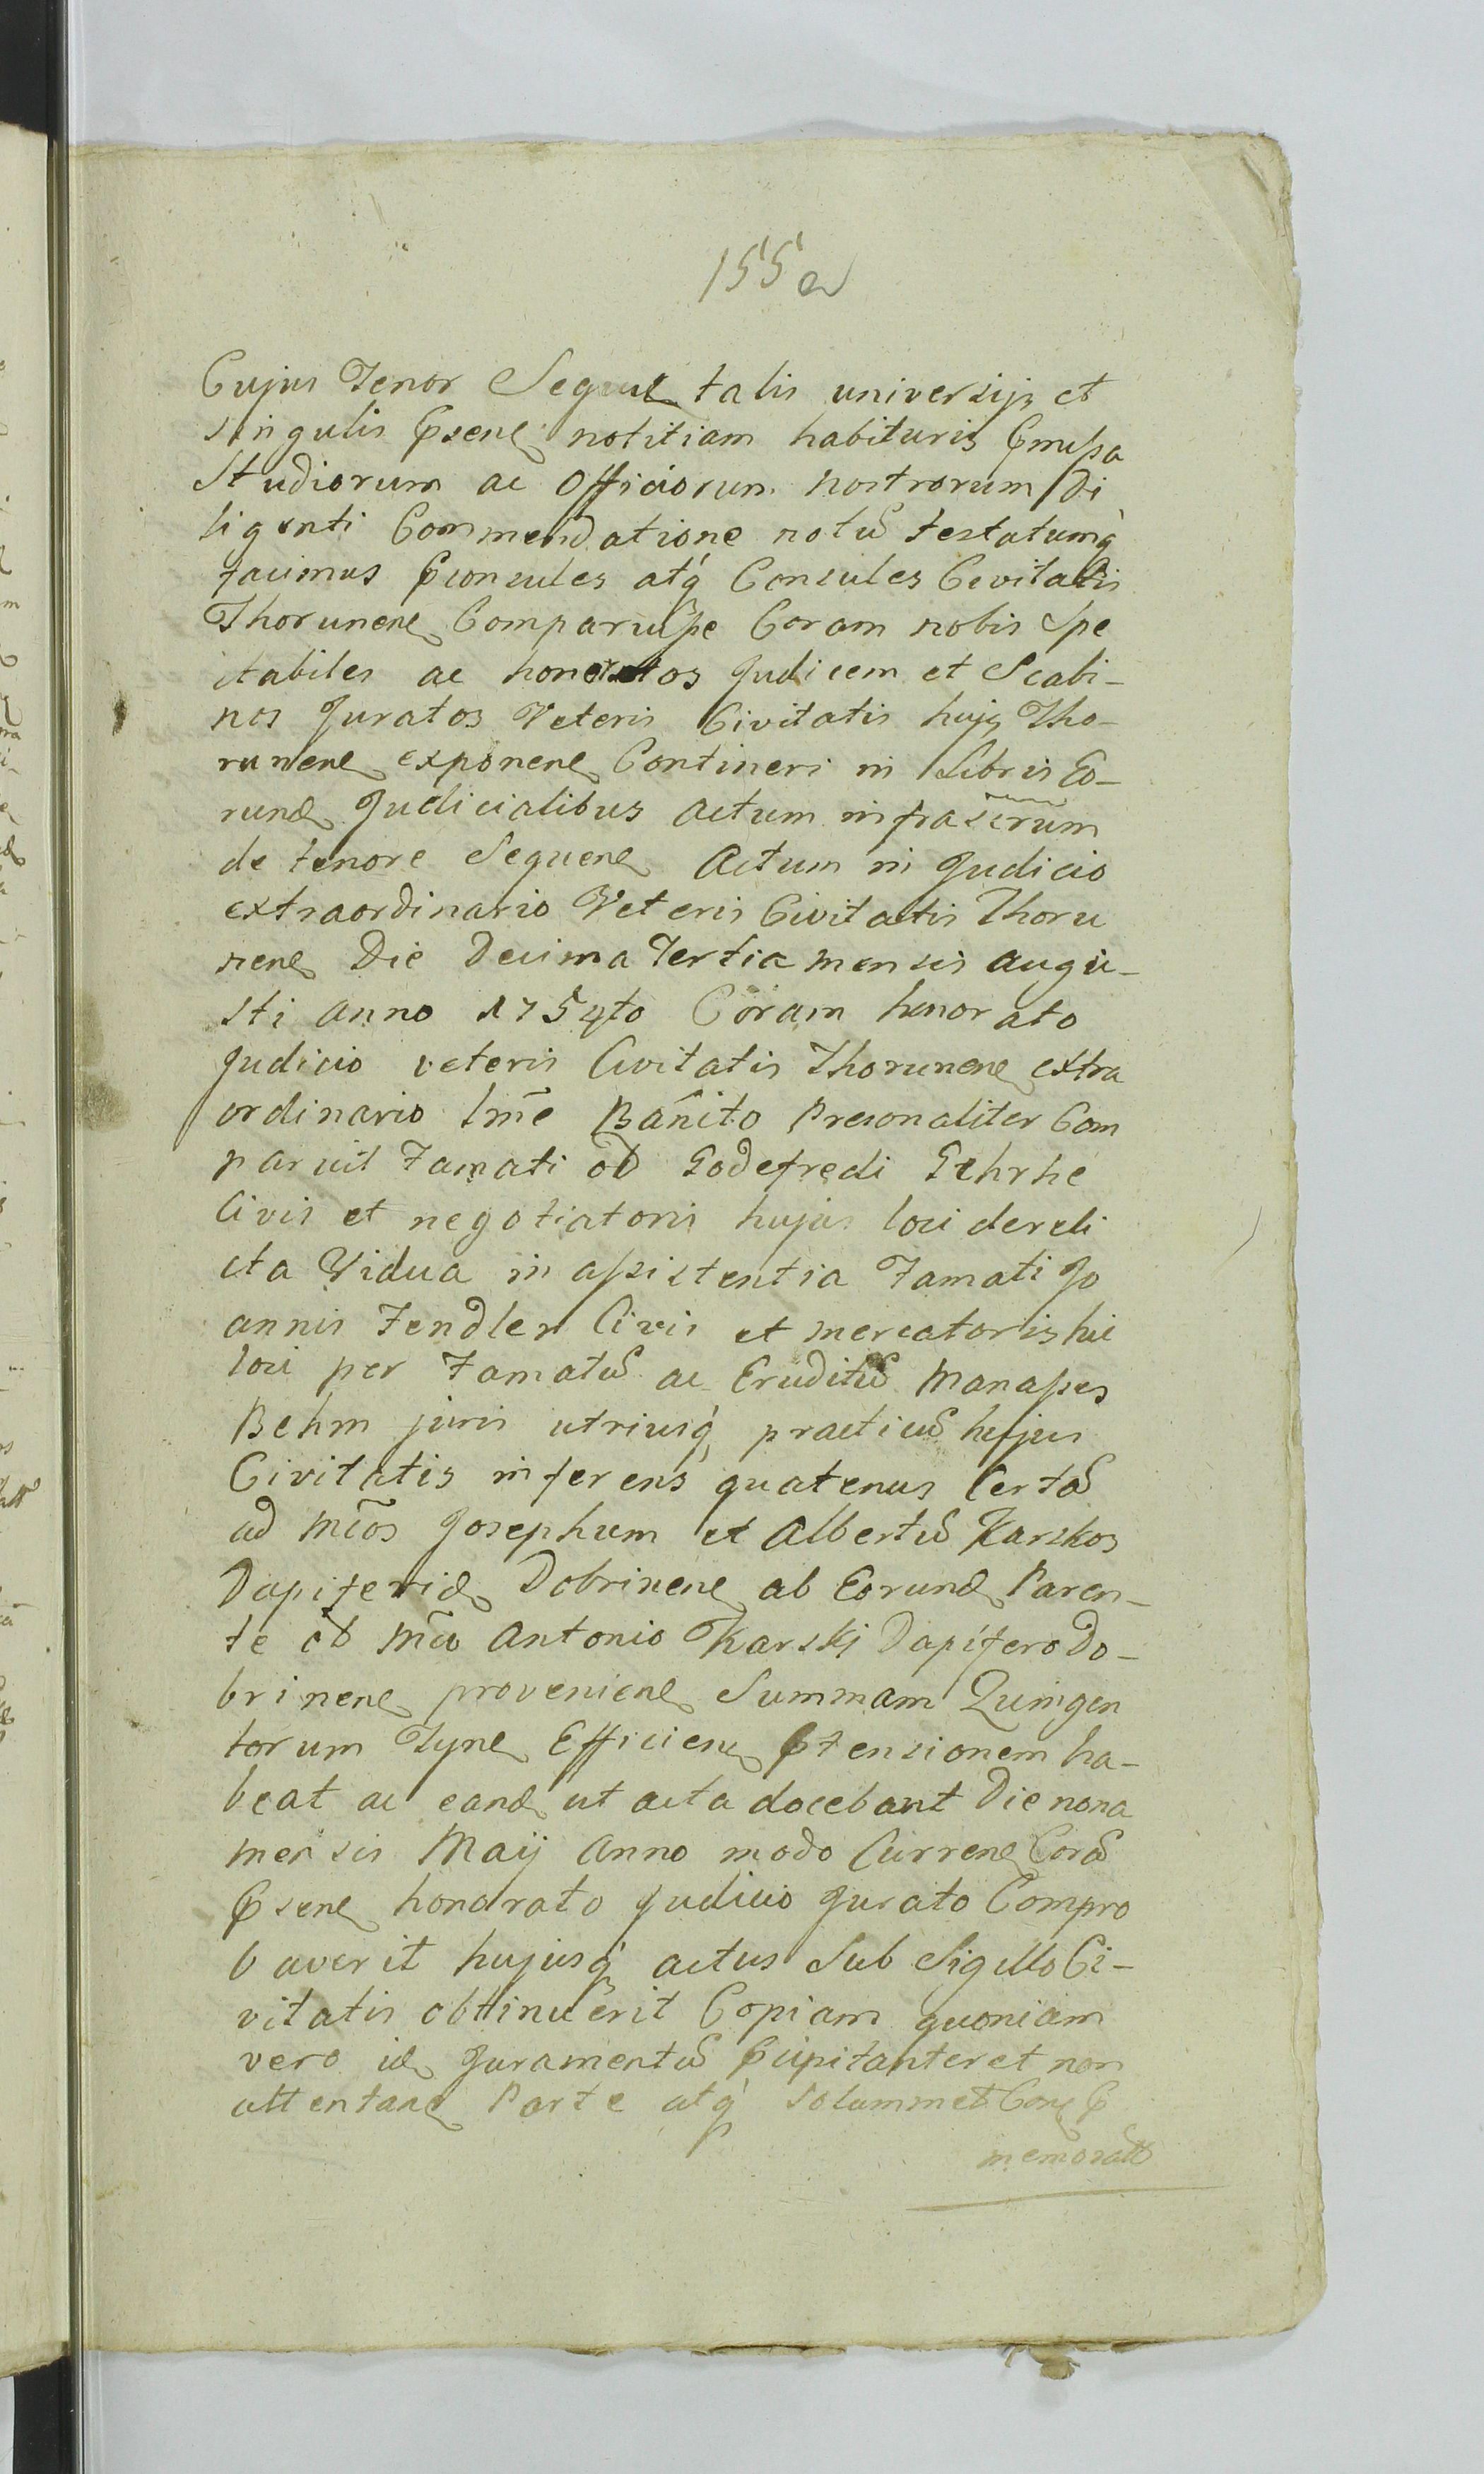 155a
Cujus Tenor Sequiꝉ talis universijs et
singulis Pͬsenꝭ notitiam habituris Pͬmissa
Studiorum ac Officiorum nostrorum Di
ligenti Commendatione notū testatumq́
facimus Proconsules atq́ Consules Civitatis
Thorunenꝭ Comparuisse Coram nobis Spe
ctabiles ac honoratos Judicem et Scabi-
nos Juratos Veteris Civitatis hujꝫ Tho-
runenꝭ exponenꝭ Contineri in Libris Eo-
rundꝭ Judicialibus actum infrascrūm
de tenore Sequenꝭ Actum in Judicio
extraordinario Veteris Civitatis Thoru
nenꝭ Die Decima Tertia mensis augu-
sti anno 1754to Coram honorato
Judicio veteris Civitatis Thorunenꝭ extra
ordinario lmē Bañito Presonaliter Com
paruit Famati oD Godefredi Gehrhe
Civis et negotiatoris hujus loci dereli
cta Vidua in assistentia Famati Jo
annis Fendler Civis et mercatoris hic
loci per Famatū ac Eruditū Manasses
Behm juris utriusq́ practicū hujus
Civitatis inferens quatenus Certā
ad Mc̄os Josephum et Albertū Karskos
Dapiferidꝭ Dobrinenꝭ ab Eorundꝭ Paren-
te oD Mc̄o Antonio Karskj Dapifero Do-
brinenꝭ provenienꝭ Summam Quingen
torum Tynꝭ Efficienꝭ Pͬtensionem ha-
beat ac eandꝭ ut acta docebant Die nona
mensis Maij Anno modo Currenꝭ Corā
Pͬsenꝭ honorato Judicio Jurato Compro
baverit hujusq́ actus Sub Sigillo Ci-
vitatis obtinuerit Copiam quoniam
vero idꝭ Juramentū Pͬcipitanter et non
attentanꝭ Parte atq́ solummet Conꝭ Pͬ
memorato